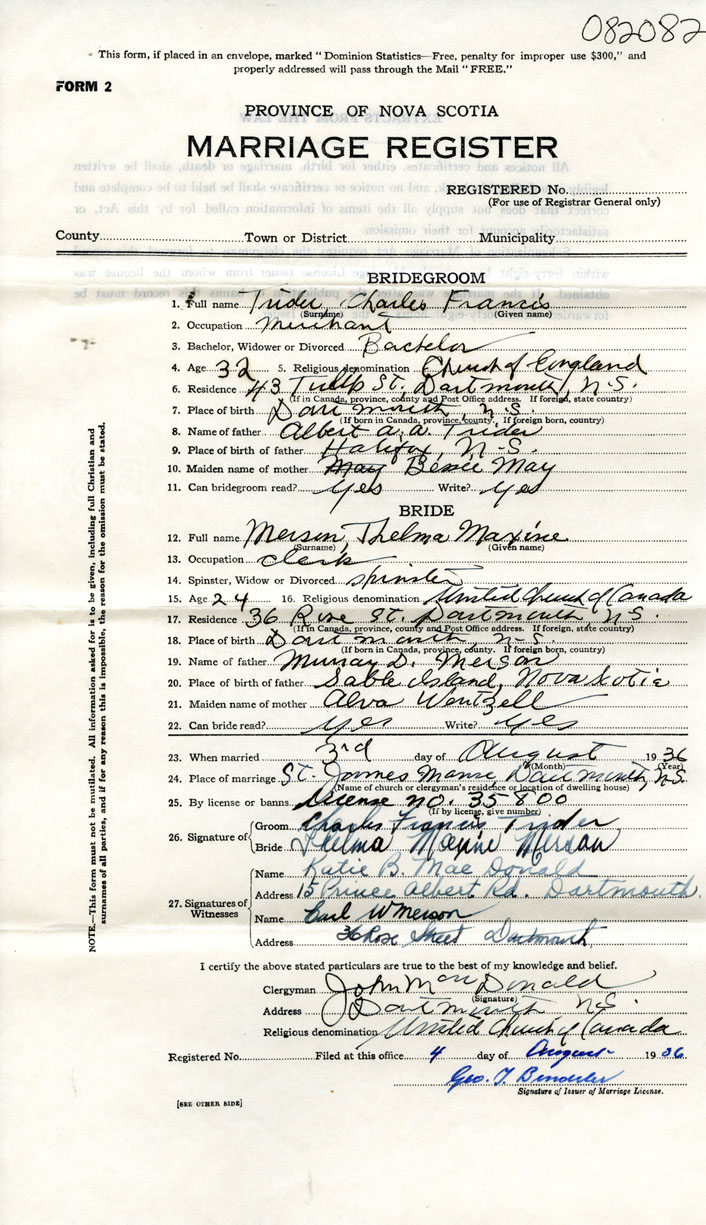 082082
This form, if placed in an envelope, marked "Dominion Statistics—Free, penalty for improper use $300," and
properly addressed will pass through the Mail "FREE."
FORM 2
PROVINCE OF NOVA SCOTIA
MARRIAGE REGISTER
REGISTERED No.
(For use of Registrar General only)
County Town or District Municipality
BRIDEGROOM
1. Full name Trider, Charles Francis
(Surname) (Given name)
2. Occupation Merchant
3. Bachelor, Widower or Divorced Bachelor
4. Age 32 5. Religious denomination Church of England
6. Residence 43 Tulip St. Dartmouth, N.S.
(If in Canada, province, county and Post Office address. If foreign, state country)
7. Place of birth Dartmouth, N.S.
(If born in Canada, province, county. If foreign born, country)
8. Name of father Albert A. A. Trider
9. Place of birth of father Halifax, N-S.
10. Maiden name of mother May Bessie May
11. Can bridegroom read? Yes Write? Yes
BRIDE
12. Full name Merson, Thelma Maxine
(Surname) (Given name)
13. Occupation clerk
14. Spinster, Widow or Divorced spinster
15. Age 24 16. Religious denomination United Church of Canada
17. Residence 36 Rose St. Dartmouth, N.S.
(If in Canada, province, county and Post Office address. If foreign, state country)
18. Place of birth Dartmouth, N-S.
(If born in Canada, province, county. If foreign born, country)
19. Name of father Murray D. Merson
20. Place of birth of father Sable Island, Nova Scotia
21. Maiden name of mother Alva Wentzell
22. Can bride read? Yes Write? Yes
23. When married 3rd day of August 1936
(Month) (Year)
24. Place of marriage St. James Manse, Dartmouth, N.S.
(Name of church or clergyman's residence or location of dwelling house)
25. By license or banns License no. 35800
(If by license, give number)
26. Signature of Groom Charles Francis Trider
Bride Thelma Maxine Merson
27. Signatures of Witnesses
Name Katie B. Mac Donald
Address 15 Prince Albert Rd. Dartmouth.
Name Carl W Merson
Address 36 Rose Street Dartmouth
I certify the above stated particulars are true to the best of my knowledge and belief.
Clergyman John Mac Donald
(Signature)
Address Dartmouth N.S.
Religious denomination United Church of Canada
Registered No. Filed at this office 4 day of August 1936
Geo. T.
Signature of Issuer of Marriage License.
[SEE OTHER SIDE]
NOTE.—This form must not be mutilated. All information asked for is to be given, including full Christian and
surnames of all parties, and if for any reason this is impossible, the reason for the omission must be stated.